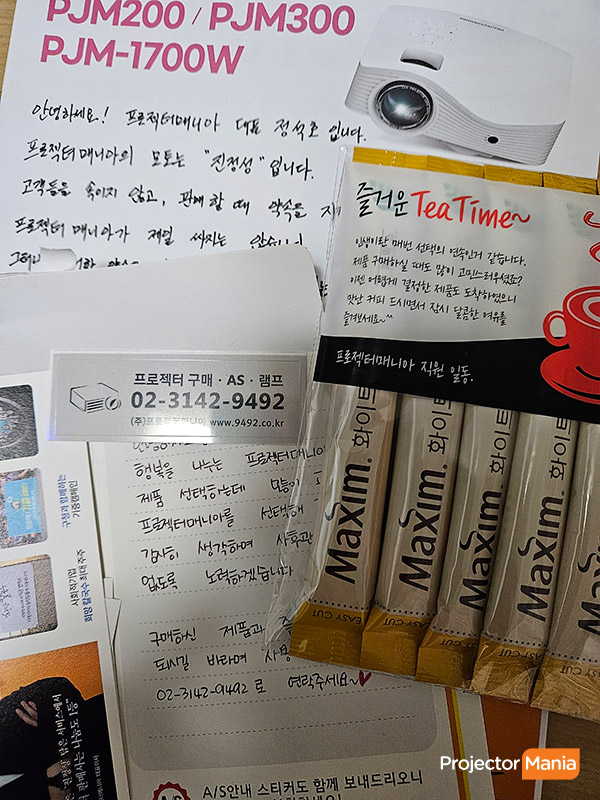 PJM200 / PJM300
PJM-1700W
안녕하세요! 프로젝터매니아 대표 정석호 입니다.
프로젝터매니아의 모토는 "진정성" 입니다.
고객들을 속이지 않고, 판매할 때 약속을
프로젝터매니아가 제일 싸지는 않습니다
즐거운 Tea Time~
인생이란 매번 선택의 연속인거 같습니다.
제품 구매하실 때도 많이 고민스러우셨죠?
이젠 어렵게 결정한 제품도 도착하였으니
맛난 커피 드시면서 잠시 달콤한 여유를
즐겨보세요~^^
프로젝터매니아 직원 일동.
프로젝터 구매 · AS · 램프
02-3142-9492
(주)프로젝터매니아 www.9492.co.kr
행복을 나누는 프로젝터매니아
제품 선택하는데 많이
프로젝터매니아를 선택해
감사히 생각하며 사후관
없도록 노력하겠습니다
구매하신 제품과
되시길 바라며 사용
02-3142-9492로 연락주세요~
A/S
A/S안내 스티커도 함께 보내드리오니
구청과 함께하는
기증캠페인
사회적기업
희망 칼국수 최대 주주
Maxim. 화이트
Maxim. 화이트
Maxim. 화이트
Maxim. 화이
Maxim.
EASY CUT
EASY CUT
EASY CUT
Projector Mania